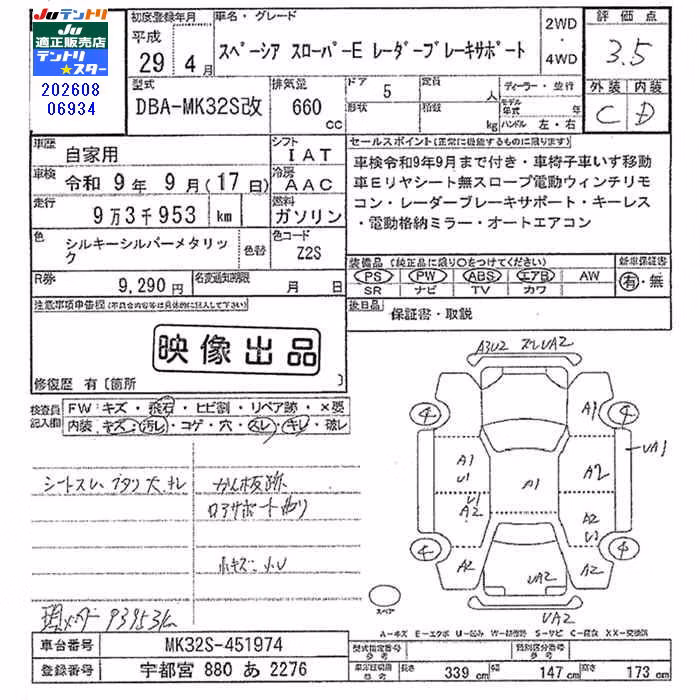 JUテントリ
JU
適正販売店
テントリ
★スター
202608
06934
初度登録年月
平成
29 4月
車名・グレード
スペーシア スローパーE レーダーブレーキサポート
2WD
・
4WD
評価点
3.5
外装 内装
C D
型式
DBA-MK32S改
排気量
660
cc
ドア 5
形状
定員 人
積載 kg
ディーラー・並行
モデル年式 年
ハンドル 左・右
車歴 自家用
車検 令和 9年 9月(17日)
走行 9万3千953 km
色 シルキーシルバーメタリック
色替
シフト IAT
冷房 AAC
燃料 ガソリン
色コード Z2S
セールスポイント(正常に機能するものに限ります)
車検令和9年9月まで付き・車椅子車いす移動
車Eリヤシート無スロープ電動ウィンチリモ
コン・レーダーブレーキサポート・キーレス
・電動格納ミラー・オートエアコン
装備品(純正品に限り○をつけてください)
PS PW ABS エアB AW
SR ナビ TV カワ
新車保証書
有・無
後日品
保証書・取説
R券 9,290円
名変期限 月 日
注意事項申告欄(不具合内容等は具体的に記入して下さい)
映像出品
修復歴 有〔箇所 〕
検査員記入欄
FW キズ・飛石・ヒビ割・リペア跡・×要
内装 キズ・汚レ・コゲ・穴・スレ・キレ・破レ
かんばん跡
小キズ・小U
現メーター 93953K
A3U2
A1
A1
U1
U1
A2
A1
A2
A2
U1
UA1
A2
UA2
A2
UA2
4
4
4
4
スペア
A-キズ E-エクボ U-凹み W-補修跡 S-サビ C-腐食 XX-交換済
車台番号 MK32S-451974
登録番号 宇都宮 880 あ 2276
型式指定番号
類別区分番号
長さ 339cm 幅 147cm 高さ 173cm